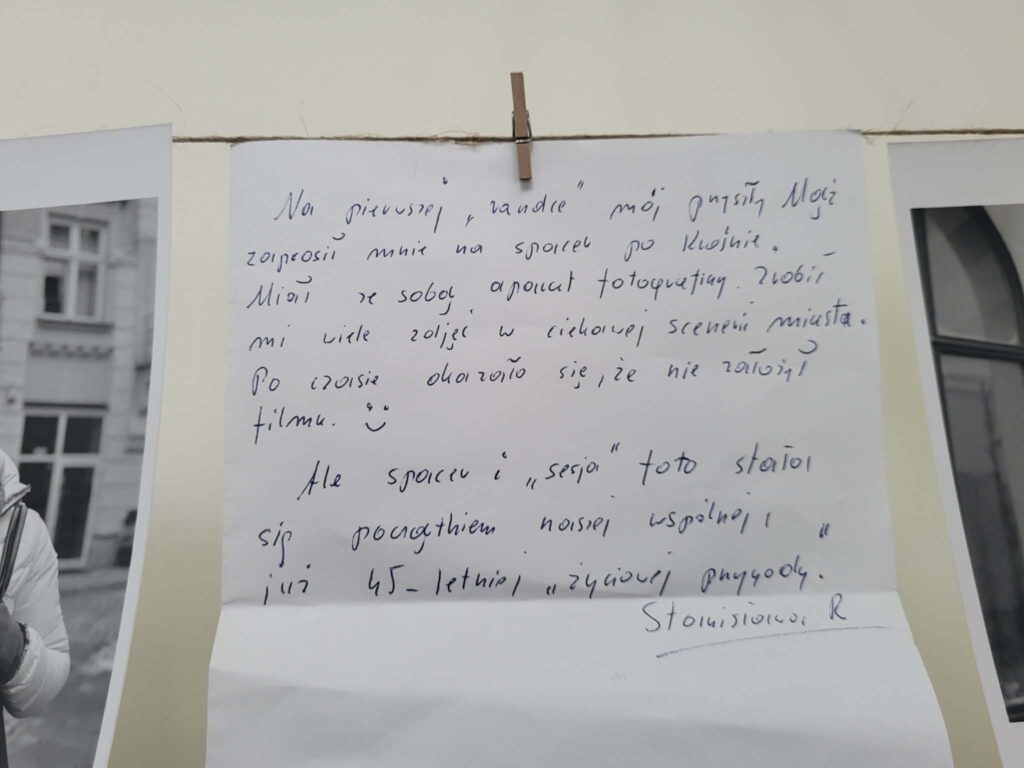 Na pierwszej „randce” mój przyszły Mąż
zaprosił mnie na spacer po Krośnie.
Miał ze sobą aparat fotograficzny. Zrobił
mi wiele zdjęć w ciekawej scenerii miasta.
Po czasie okazało się, że nie założył
filmu.
Ale spacer i „sesja” foto stała
się początkiem naszej wspólnej i
już 45-letniej „życiowej przygody.”
Stanisława R